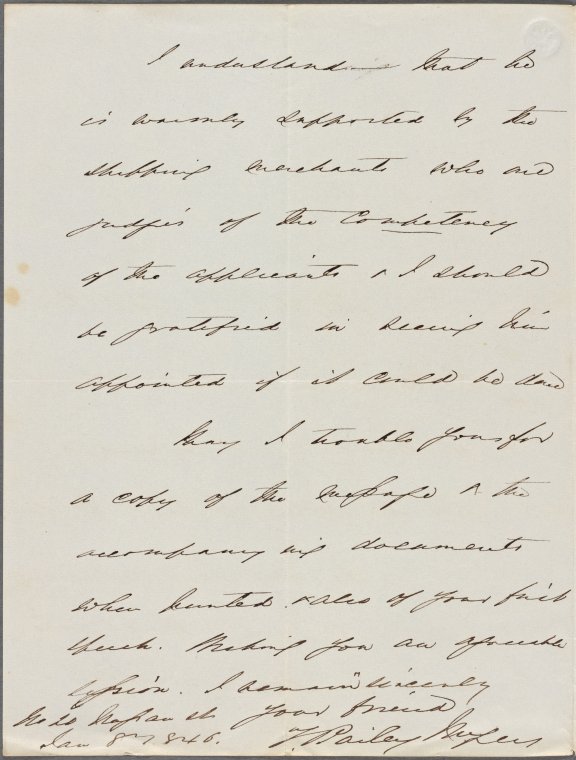 I understand — that he
is warmly supported by the
shipping merchants who are
judges of the Competency
of the applicants & I should
be gratified in seeing him
appointed if it could be done
May I trouble you for
a copy of the message & the
accompanying documents
when printed. & also of your first
speech. Making you an agreeable
session. I remain sincerely
your friend
No 20 Nassau st
Jan 8th 1846.
J. Bailey Myers